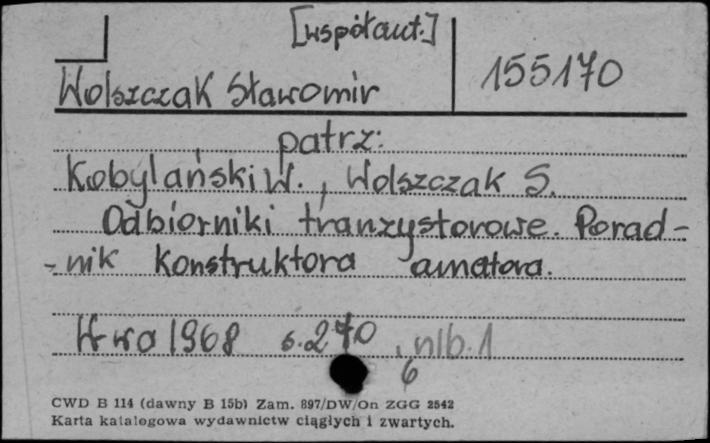 [współaut.]
Wolszczak Sławomir 155170
patrz:
Kobylański W., Wolszczak S.
Odbiorniki tranzystorowe. Porad-
-nik konstruktora amatora.
W-wa 1968 s. 270, nlb. 1
6
CWD B 114 (dawny B 15b) Zam. 897/DW/On ZGG 2542
Karta katalogowa wydawnictw ciągłych i zwartych.